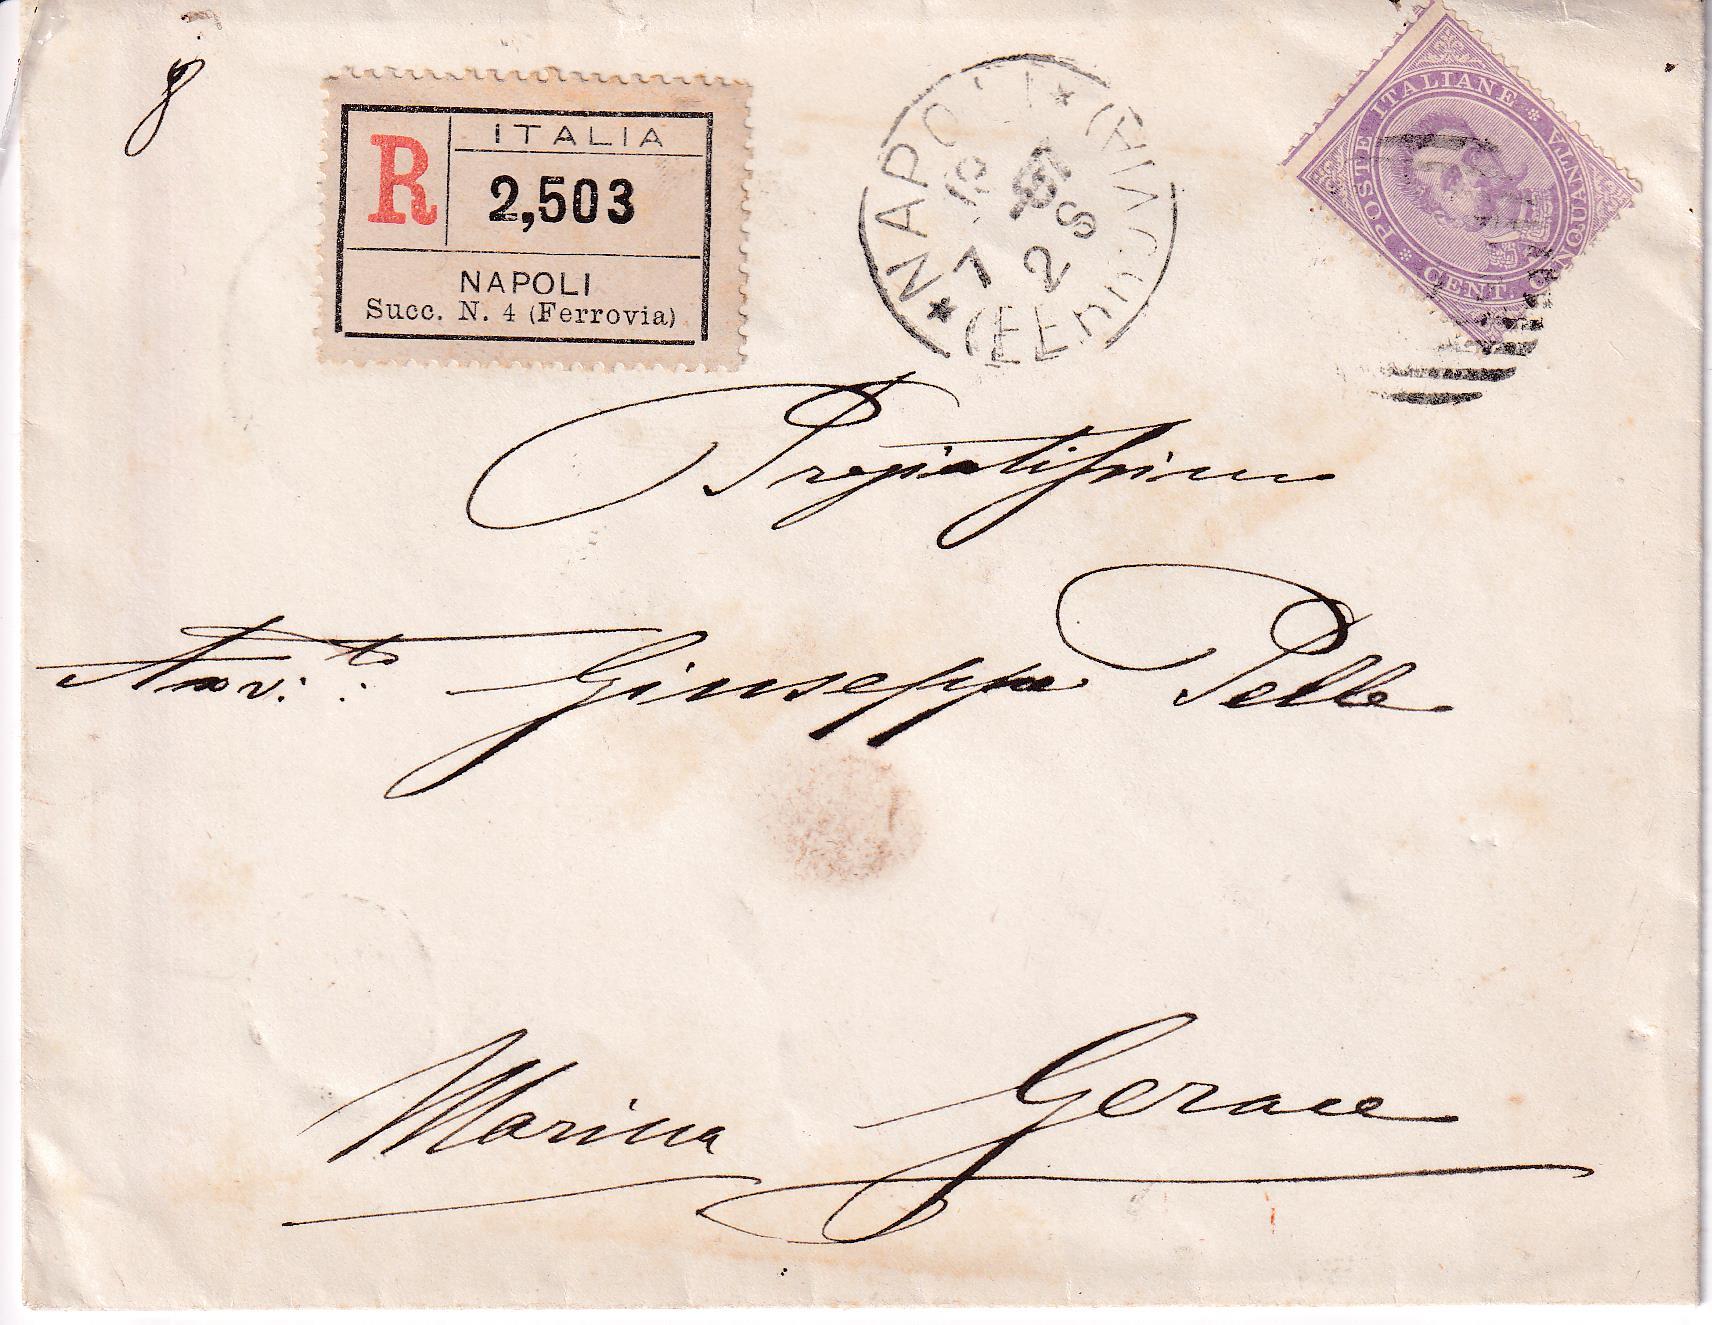 R
ITALIA
2,503
NAPOLI
Succ. N. 4 (Ferrovia)
NAPOLI
(FERROVIA)
POSTE ITALIANE
CENT. CINQUANTA
Pregiatissimo
Giuseppe Pelle
Marina Gerace